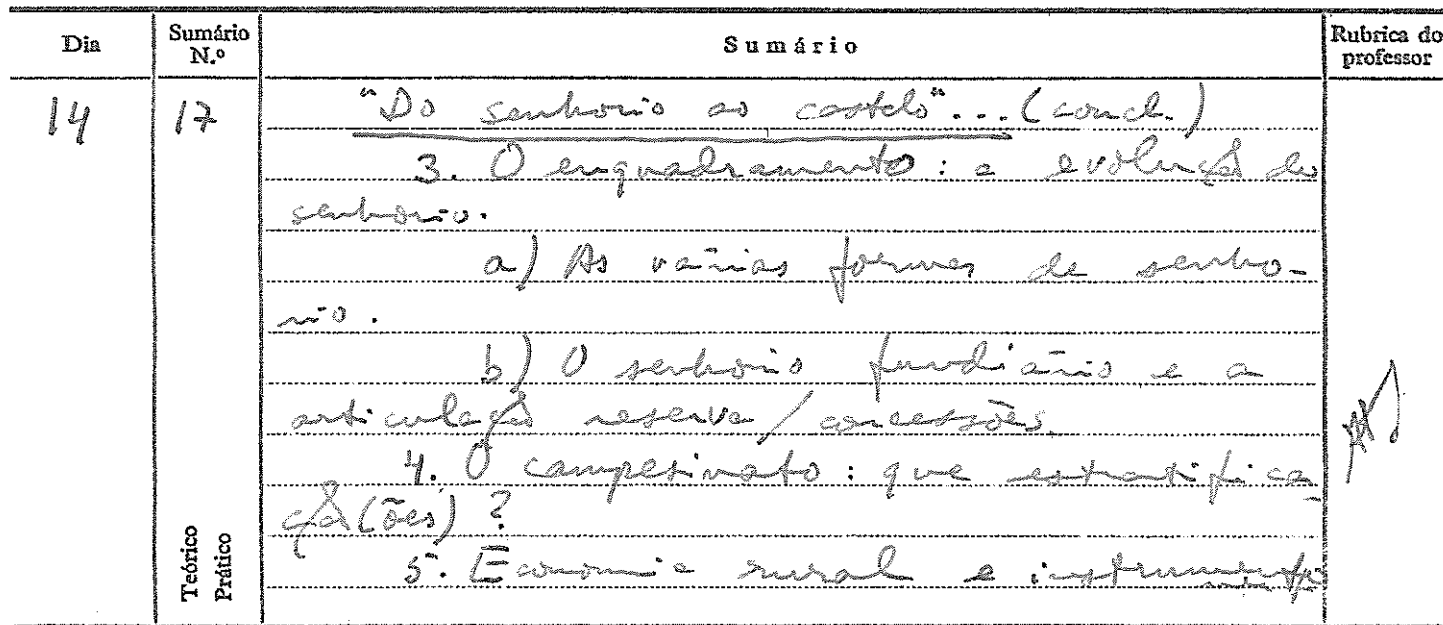 Dia Sumário N.º Sumário Rubrica do professor
14 17 "Do senhorio ao castelo"... (concl.)
3. O enquadramento: a evolução do
senhorio.
a) As várias formas de senho-
rio.
b) O senhorio fundiário e a
articulação reserva/concessões.
4. O campesinato: que estratifica-
ção(ões)?
Teórico Prático
5. Economia rural e